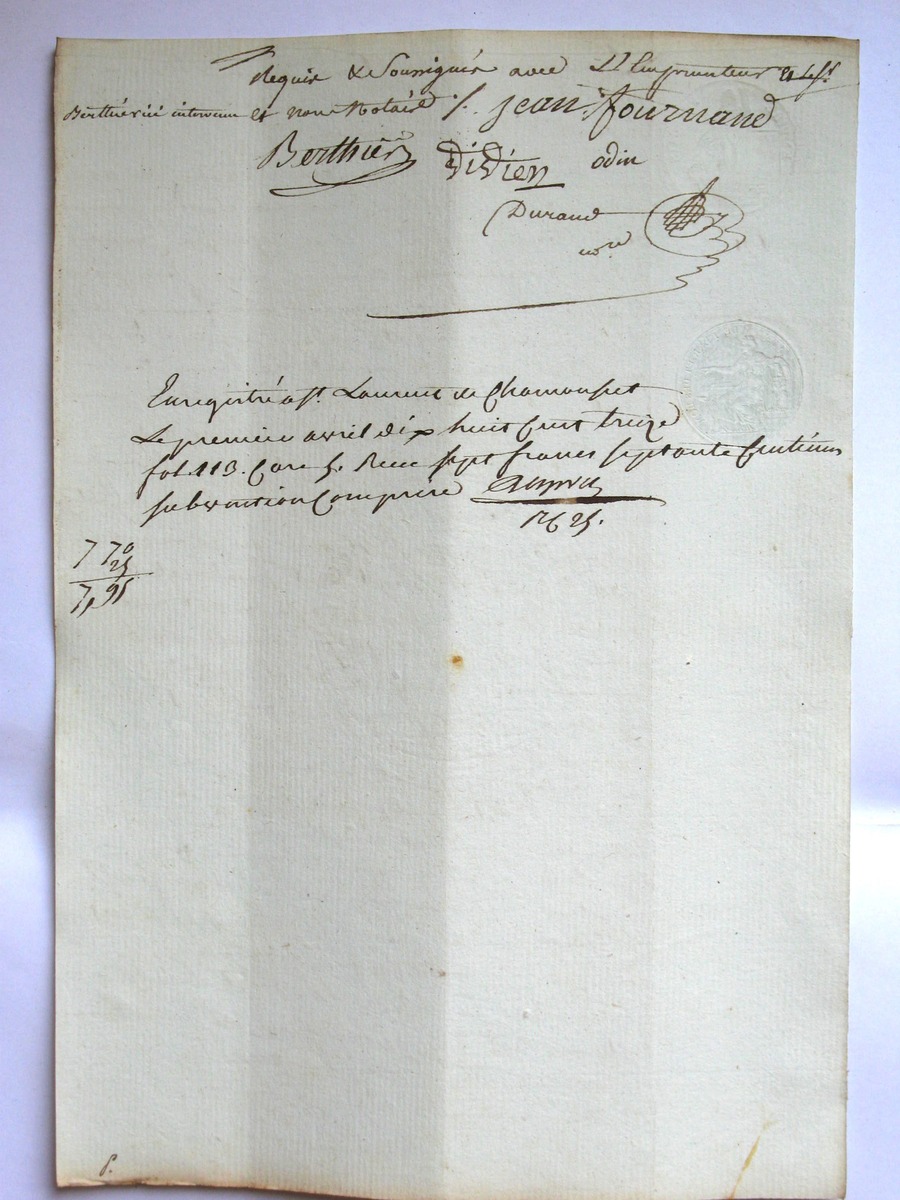 Requis & Soussignés avec L'Emprunteur et le sr
Berthier ici intervenu et nous Notaire /. jean fournand
Berthier didien odin
Durand
nore
Enregistré a st. Laurent de Chamousset
Le premier avril dix huit Cent treize
fol. 113. Case 5. Recu sept francs septante Centimes
subvention Comprise
7 70
25
7,95